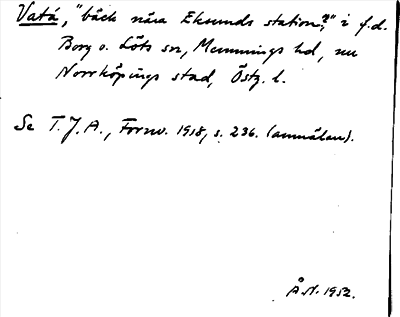 Vatå, "bäck nära Eksunds station?" i f.d.
Borg o. Löts sn, Memmings hd, nu
Norrköpings stad, Östg. l.
Se T.J.A., Fornv. 1918, s. 236. (anmälan).
Å.N. 1952.